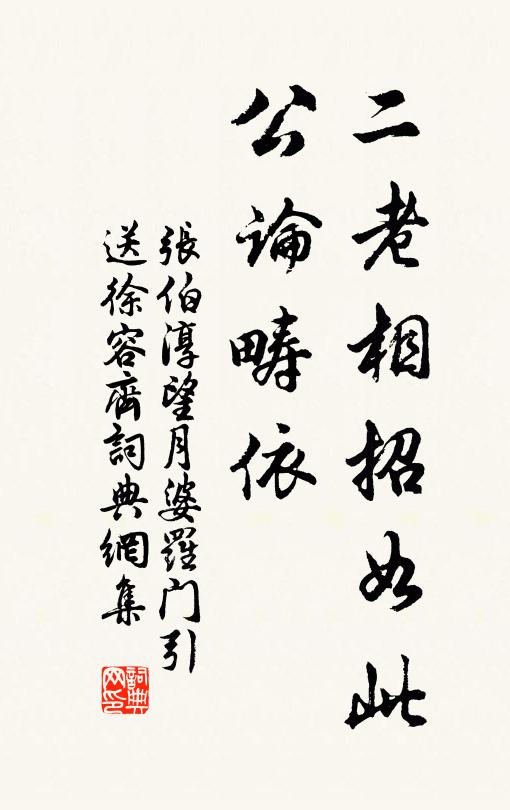 二老相招如此
公論疇依
張伯淳望月婆羅门引
送徐容齋詞典網集
詞典网印